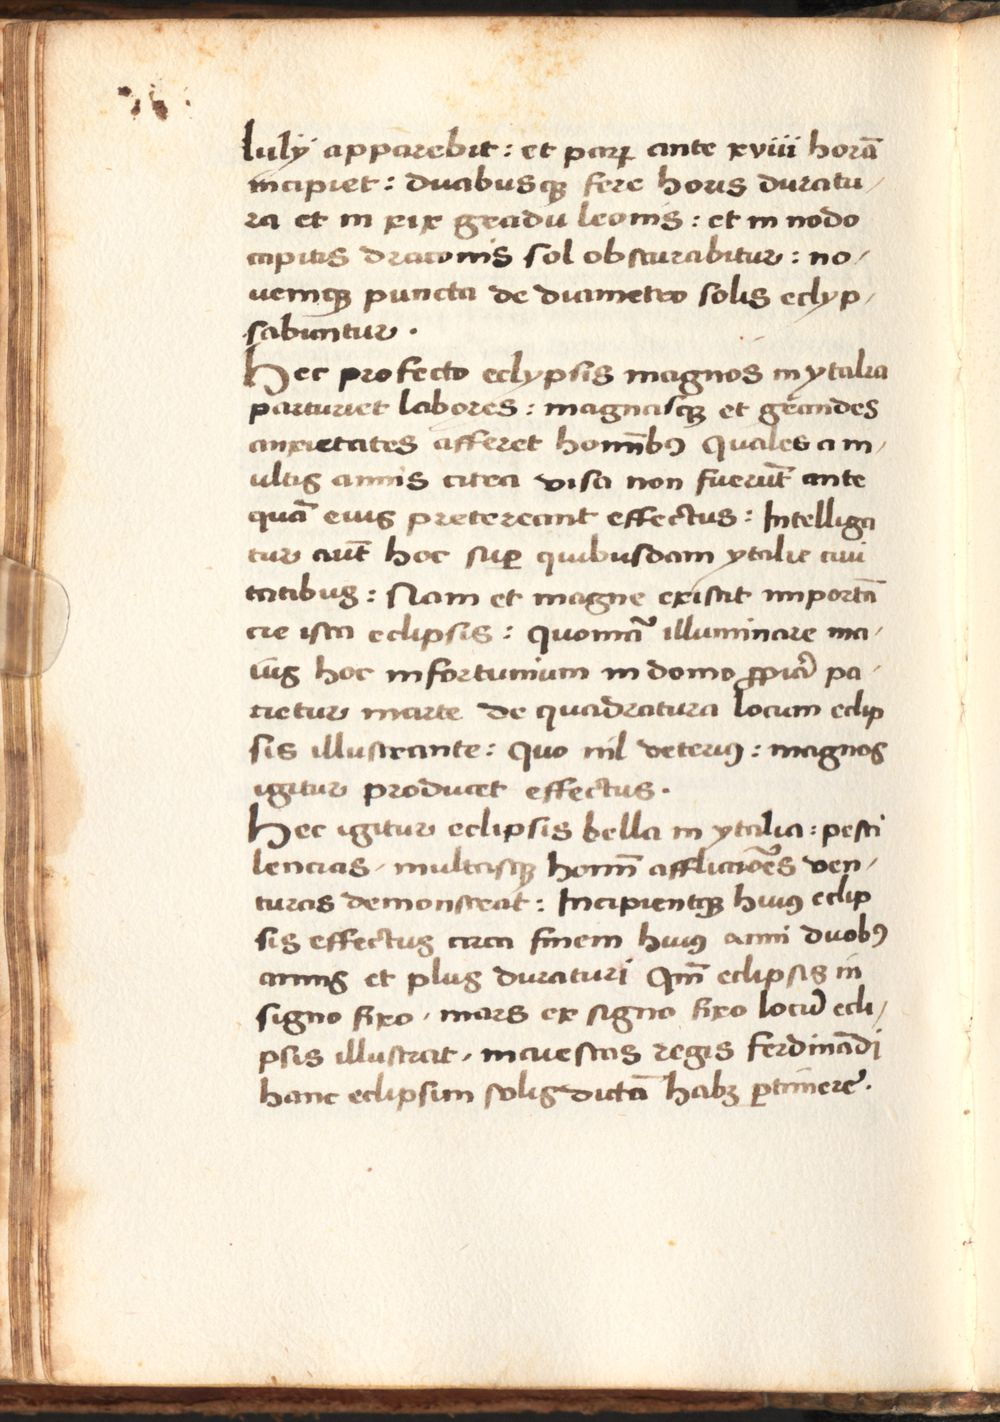 Iulÿ apparebit : et paꝝ ante xviii horā
incipiet : duabusqꝫ fere horis duratu/
ra et in xix gradu leonis : et in nodo
capitis draconis sol obscurabitur : no/
uemqꝫ puncta de diametro solis eclyp/
sabuntur .
Hec profecto eclypsis magnos in ytalia
parturiet labores : magnasqꝫ et grandes
anxietates afferet hominibꝰ Quales a m/
ultis annis citra visa non fuerūt ante
quā eius pretereant effectus : Intelliga
tur aūt hoc suꝑ quibusdam ytalie ciui
tatibus : Nam et magne existit importā
cie ista eclipsis : quoniā illuminare ma/
ius hoc infortunium in domo ꝓpiā pa/
cietur marte de quadratura locum eclip
sis illustrante : quo nil deteriꝰ : magnos
igitur producet effectus .
Hec igitur eclipsis bella in ytalia : pesti
lencias / multasqꝫ hominū afflictiones ven/
turas demonstrat : Incipientqꝫ huiꝰ eclip
sis effectus circa finem huiꝰ anni duobꝰ
annis et plus duraturi Qm̄ eclipsis in
signo fixo / mars ex signo fixo locū ecli/
psis illustrat / maiestas regis ferdinādi
hanc eclipsim solis dictā habꝫ ꝑtinere .